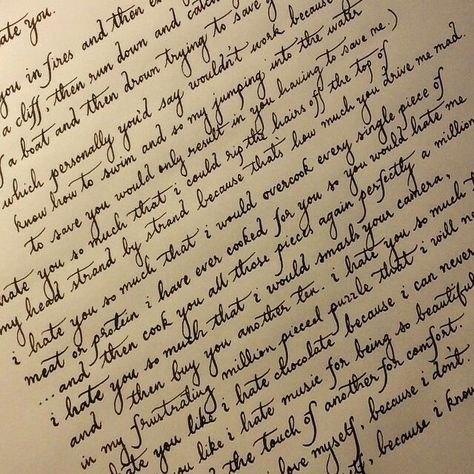 ate you.
you in fires and then
a cliff, then run down and catch
f a boat and then drown trying to save y
which personally you'd say wouldn't work because
know how to swim and so my jumping into the water
to save you would only result in you having to save me.)
hate you so much that i could rip the hairs off the top of
my head strand by strand because that's how much you drive me mad.
i hate you so much that i would overcook every single piece of
meat or protein i have ever cooked for you so you would hate me
...and then cook you all those pieces again perfectly a million
i hate you so much that i would smash your camera,
and then buy you another ten. i hate you so much t
in my frustrating million pieced puzzle that i will n
hate you like i hate chocolate because i can never
you like i hate music for being so beautiful
d the touch of another for comfort.
love myself, because i don't
lf, because i know